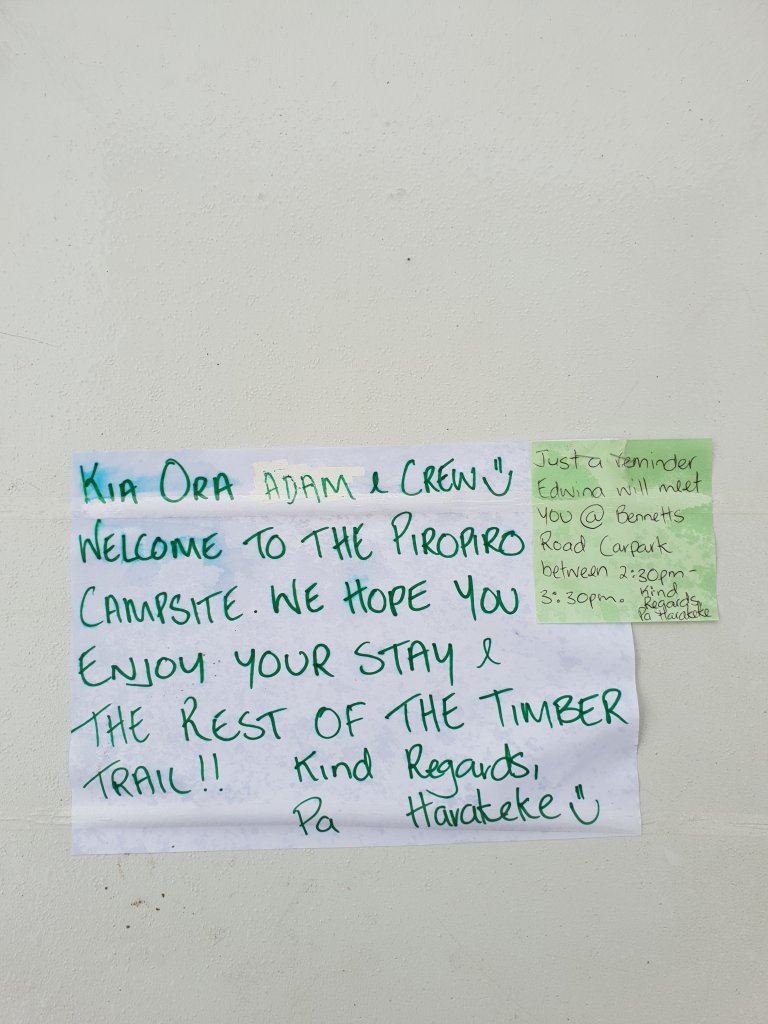 KIA ORA ADAM & CREW
WELCOME TO THE PIROPIRO
CAMPSITE. WE HOPE YOU
ENJOY YOUR STAY &
THE REST OF THE TIMBER
TRAIL!! Kind Regards,
Pa Harakeke
Just a reminder
Edwina will meet
you @ Bennetts
Road Carpark
between 2:30pm-
3:30pm. Kind
Regards,
Pa Harakeke